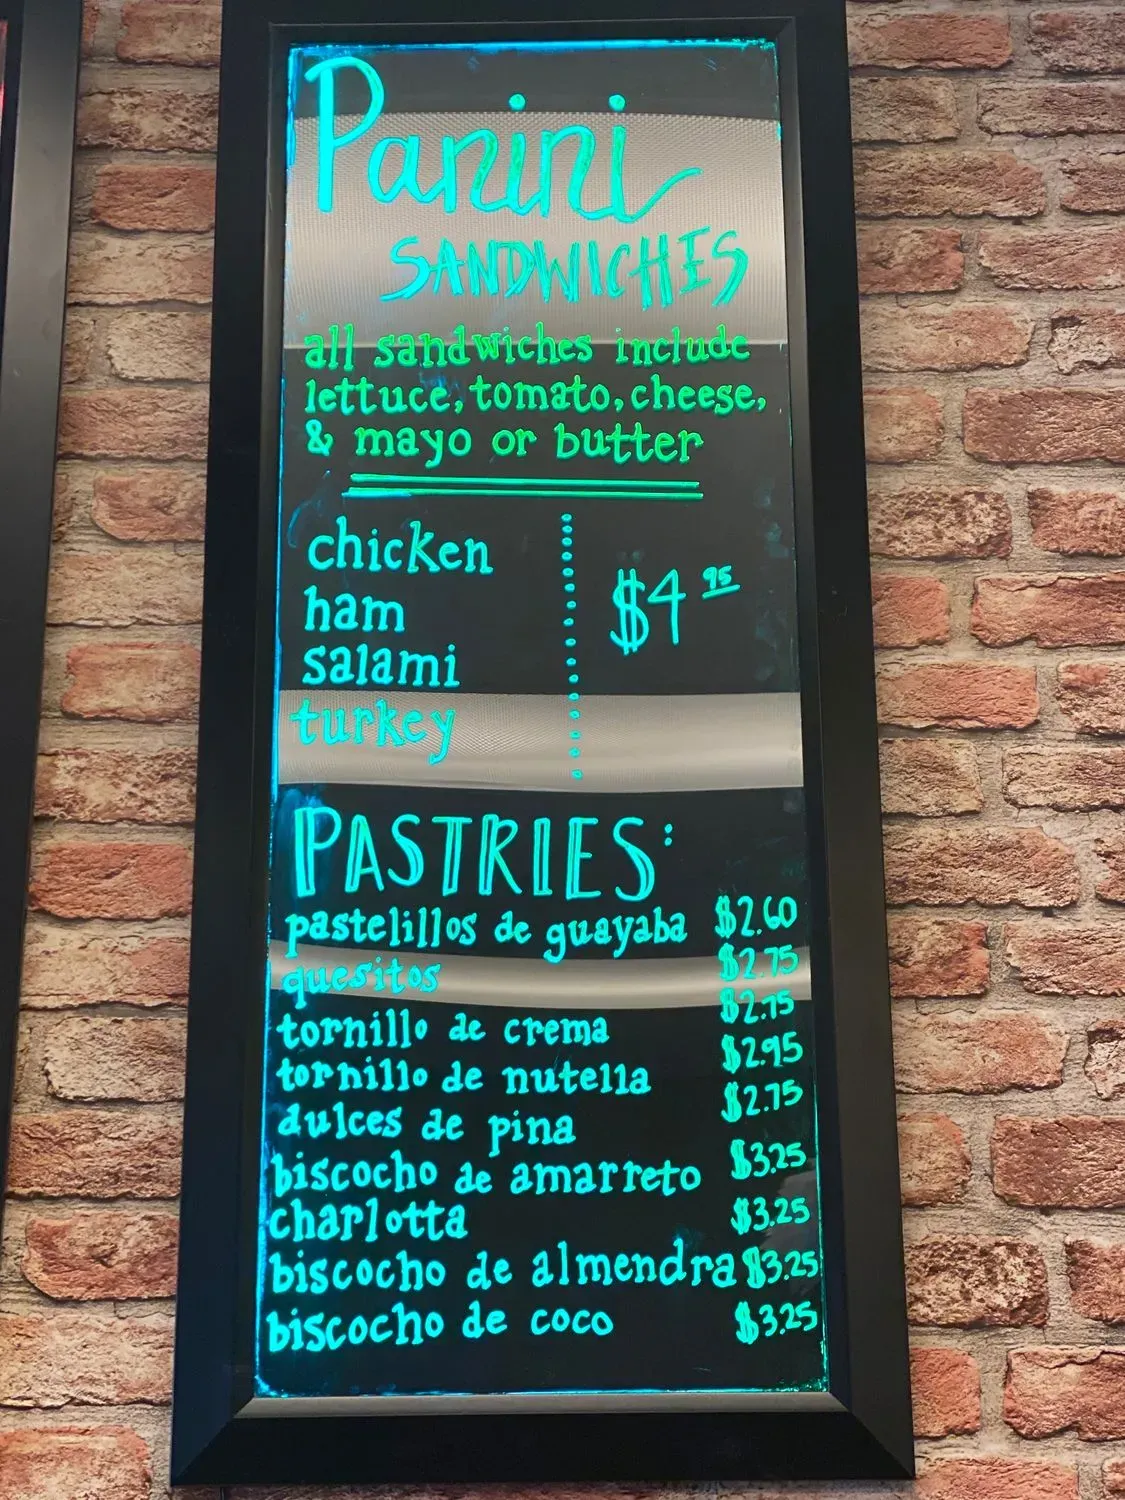 Panini
SANDWICHES
all sandwiches include
lettuce, tomato, cheese,
& mayo or butter
chicken
ham
salami
turkey
$4 95
PASTRIES:
pastelillos de guayaba $2.60
quesitos $2.75
tornillo de crema $2.75
tornillo de nutella $2.95
dulces de pina $2.75
biscocho de amarreto $3.25
charlotta $3.25
biscocho de almendra $3.25
biscocho de coco $3.25